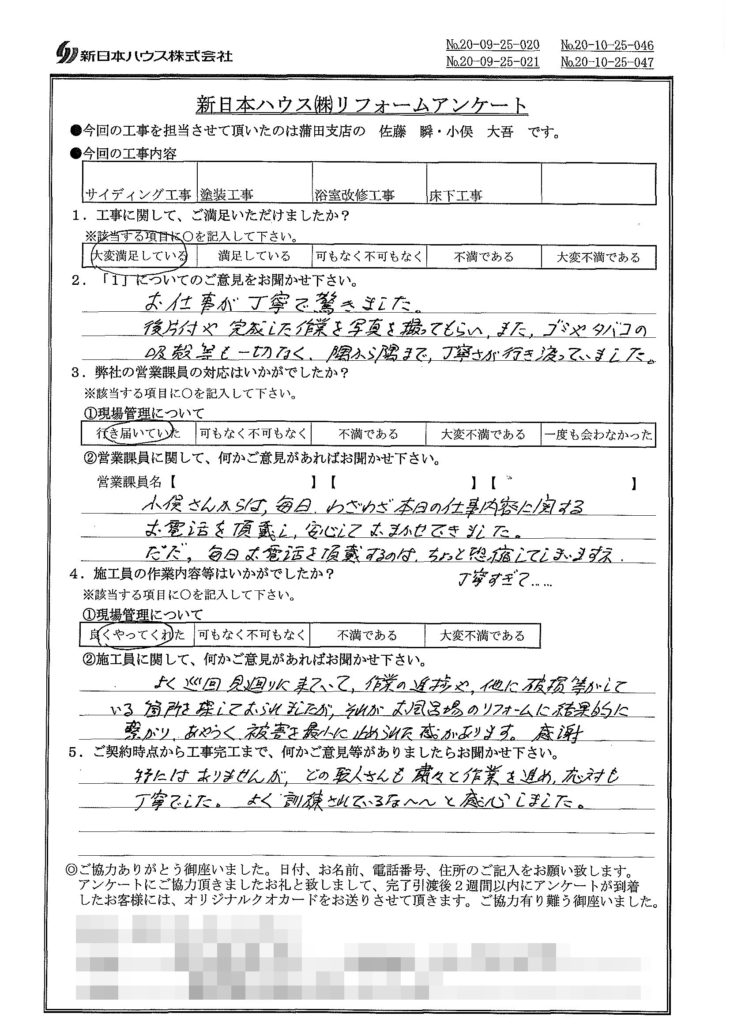 新日本ハウス株式会社
No.20-09-25-020 No.20-10-25-046
No.20-09-25-021 No.20-10-25-047
新日本ハウス㈱リフォームアンケート
●今回の工事を担当させて頂いたのは蒲田支店の 佐藤 瞬・小俣 大吾 です。
●今回の工事内容
サイディング工事 塗装工事 浴室改修工事 床下工事
1．工事に関して、ご満足いただけましたか？
※該当する項目に○を記入して下さい。
大変満足している 満足している 可もなく不可もなく 不満である 大変不満である
2．「1」についてのご意見をお聞かせ下さい。
お仕事が丁寧で驚きました。
後片付や完成した作業を写真を撮ってもらい、また、ゴミやタバコの
吸殻等も一切なく、隅から隅まで、丁寧さが行き渡っていました。
3．弊社の営業課員の対応はいかがでしたか？
※該当する項目に○を記入して下さい。
①現場管理について
行き届いていた 可もなく不可もなく 不満である 大変不満である 一度も会わなかった
②営業課員に関して、何かご意見があればお聞かせ下さい。
営業課員名【 】【 】【 】
小俣さんからは、毎日、わざわざ本日の仕事内容に関する
お電話を頂戴し、安心しておまかせできました。
ただ、毎日お電話を頂戴するのは、ちょっと恐縮してしまいますネ．
丁寧すぎて……
4．施工員の作業内容等はいかがでしたか？
※該当する項目に○を記入して下さい。
①現場管理について
良くやってくれた 可もなく不可もなく 不満である 大変不満である
②施工員に関して、何かご意見があればお聞かせ下さい。
よく巡回見廻りに来ていて、作業の進捗や、他に破損等がして
いる箇所を探しておられましたが、それがお風呂場のリフォームに結果的に
繋がり、あやうく、被害を最小に止められた感があります。感謝
5．ご契約時点から工事完工まで、何かご意見等がありましたらお聞かせ下さい。
特にはありませんが、どの職人さんも粛々と作業を進め、応対も
丁寧でした。よく訓練されているな〜〜と感心しました。
◎ご協力ありがとう御座いました。日付、お名前、電話番号、住所のご記入をお願い致します。
アンケートにご協力頂きましたお礼と致しまして、完了引渡後２週間以内にアンケートが到着
したお客様には、オリジナルクオカードをお送りさせて頂きます。ご協力有り難う御座いました。